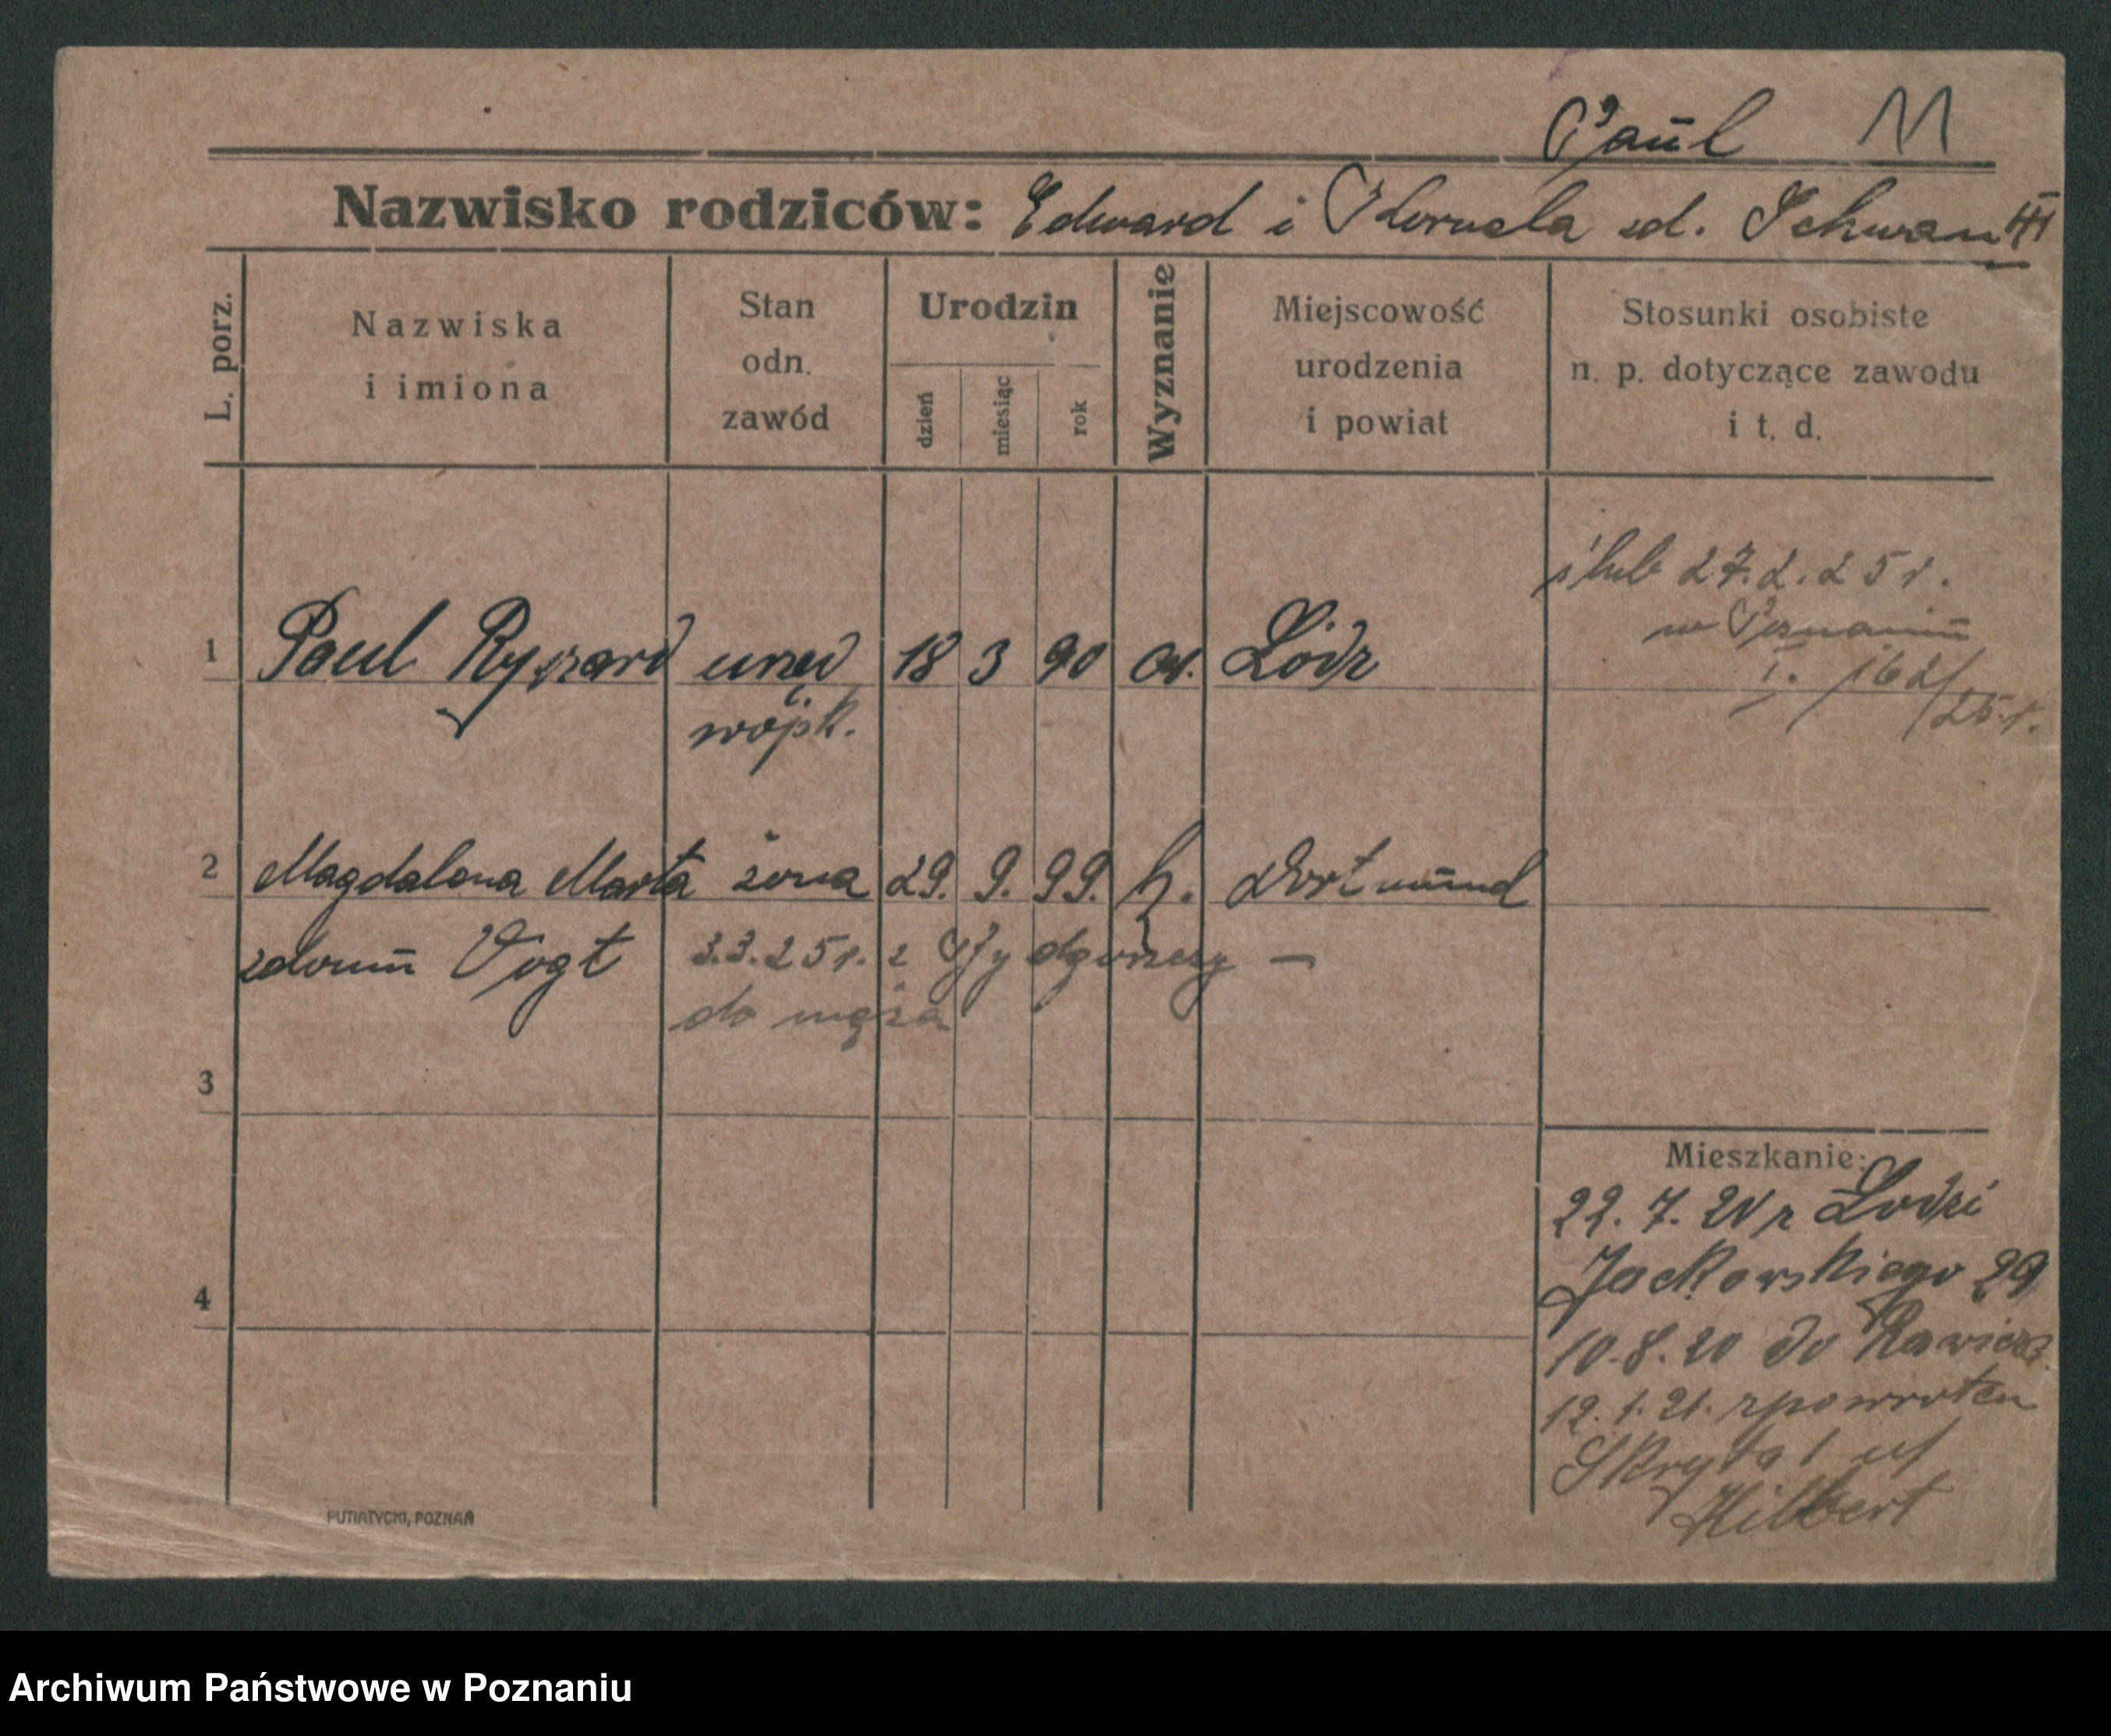 Paul 11
Nazwisko rodziców: Edward i zd.
L. porz.
Nazwiska
i imiona
Stan
odn.
zawód
Urodzin
dzień
miesiąc
rok
Wyznanie
Miejscowość
urodzenia
i powiat
Stosunki osobiste
n. p. dotyczące zawodu
i t. d.
ślub 27.2.25 r.
w Poznaniu
I. 162/
25 r.
1 Paul Ryszard 18 3 90 Łódź
2 Magdalena Marta żona 29. 9. 99. Dortmund
Vogt 3.3.25 r. z Bydgoszczy —
do męża
3
4
Mieszkanie:
22. 7. 20 z Łodzi
Jackowskiego 29
10.8.20 do
12.1.21. zpowrotem
Skryta 1
Hilbert
PUTIATYCKI, POZNAŃ
Archiwum Państwowe w Poznaniu